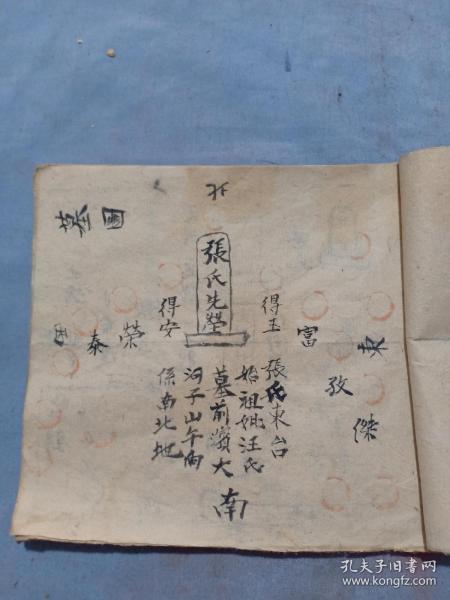 北
墓圖
張氏先塋
得玉
得安
富
榮
泰
西
東
孜
傑
張氏東台
始祖妣汪氏
墓前濱大
河子山午向
係南北地
南
孔夫子旧书网
www.kongfz.com